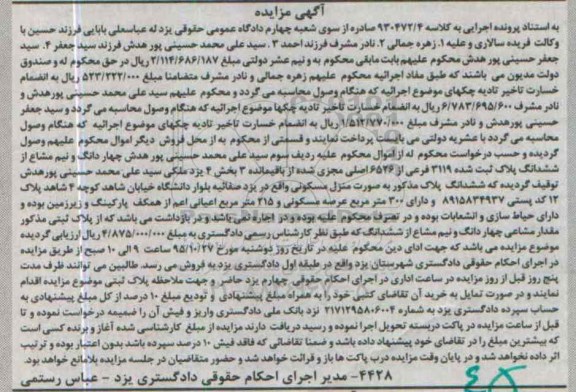 آگهی مزایده
به استناد پرونده اجرایی به کلاسه ۹۳۰۴۷۲/۴ صادره از سوی شعبه چهارم دادگاه عمومی حقوقی یزد له عباسعلی بابایی فرزند حسین با
وکالت فریده سالاری و علیه ۱. زهره جمالی ۲. نادر مشرف فرزند احمد ۳. سید علی محمد حسینی پور هدش فرزند سید جعفر ۴. سید
جعفر حسینی پور هدش محکوم علیهم بابت مابقی محکوم به و نیم عشر دولتی مبلغ ۲/۱۱۴/۶۸۶/۱۸۷ ریال در حق محکوم له و صندوق
دولت مدیون می باشند که طبق مفاد اجرائیه محکوم علیهم زهره جمالی و نادر مشرف متضامنا مبلغ ۵۲۳/۲۲۲/۰۰۰ ریال به انضمام
خسارت تاخیر تادیه چکهای موضوع اجرائیه که هنگام وصول محاسبه می گردد و محکوم علیهم سید علی محمد حسینی پورهدش و
نادر مشرف ۶/۷۸۳/۶۹۵/۶۰۰ ریال به انضمام خسارت تاخیر تادیه چکها موضوع اجرائیه که هنگام وصول محاسبه می گردد و سید جعفر
حسینی پورهدش و نادر مشرف مبلغ ۱/۵۱۲/۷۷۰/۰۰۰ ریال به انضمام خسارات تاخیر تادیه چکهای موضوع اجرائیه که هنگام وصول
محاسبه می گردد با عشریه دولتی می بایست پرداخت نمایند و قسمتی از محکوم به از محل فروش دیگر اموال محکوم علیهم وصول
گردیده و حسب درخواست محکوم له از اموال محکوم علیه ردیف سوم سید علی محمد حسینی پور هدش چهار دانگ و نیم مشاع از
ششدانگ پلاک ثبت شده ۳۱۱۹ فرعی از ۶۵۲۶ اصلی مجزی شده از باقیمانده ۳ بخش ۴ یزد ملکی سید علی محمد حسینی پورهدش
توقیف گردیده که ششدانگ پلاک مذکور به صورت منزل مسکونی واقع در یزد صفائیه بلوار دانشگاه خیابان شاهد کوچه ۴ شاهد پلاک
۱۲ کد پستی ۸۹۱۵۸۳۴۹۳۷ و دارای ۳۰۰ متر مربع عرصه مسکونی و ۲۱۵ متر مربع اعیانی اعم از همکف پارکینگ و زیرزمین بوده و
دارای حیاط سازی و انشعابات بوده و در تصرف محکوم علیه بوده و در اجاره نمی باشد و در بازداشت می باشد که از پلاک ثبتی مذکور
مقدار مشاعی چهار دانگ و نیم مشاع از ششدانگ که طبق نظر کارشناس رسمی دادگستری به مبلغ ۴/۸۷۵/۰۰۰/۰۰۰ ریال ارزیابی گردیده
موضوع مزایده می باشد که جهت ادای دین محکوم علیه در تاریخ روز دوشنبه مورخ ۹۵/۱۰/۲۷ ساعت ۹ الی ۱۰ صبح از طریق مزایده
در اجرای احکام حقوقی دادگستری شهرستان یزد واقع در طبقه اول دادگستری یزد به فروش می رسد. طالبین می توانند ظرف مدت
پنج روز قبل از روز مزایده در ساعت اداری در اجرای احکام حقوقی چهارم یزد حاضر و جهت ملاحظه پلاک ثبتی موضوع مزایده اقدام
نمایند و در صورت تمایل به خرید آن تقاضای کتبی خود را به همراه مبلغ پیشنهادی و تودیع مبلغ ۱۰ درصد از کل مبلغ پیشنهادی به
حساب سپرده دادگستری یزد به شماره ۲۱۷۱۲۹۵۸۰۶۰۰۴ نزد بانک ملی دادگستری واریز و فیش آن را ضمیمه درخواست نموده و تا
قبل از ساعت مزایده در پاکت دربسته تحویل اجرا نموده و رسید دریافت دارند مزایده از مبلغ کارشناسی شده آغاز و برنده کسی است
که بیشترین مبلغ را در تقاضای خود پیشنهاد داده باشد و ضمنا تقاضائی که فاقد فیش ۱۰ درصد سپرده باشد بدون اعتبار بوده و ترتیب
اثر داده نخواهد شد و در پایان وقت مزایده درب پاکت ها باز و قرائت خواهد شد و حضور متقاضیان در جلسه مزایده بلامانع خواهد بود.
۴۴۲۸- مدیر اجرای احکام حقوقی دادگستری یزد - عباس رستمی